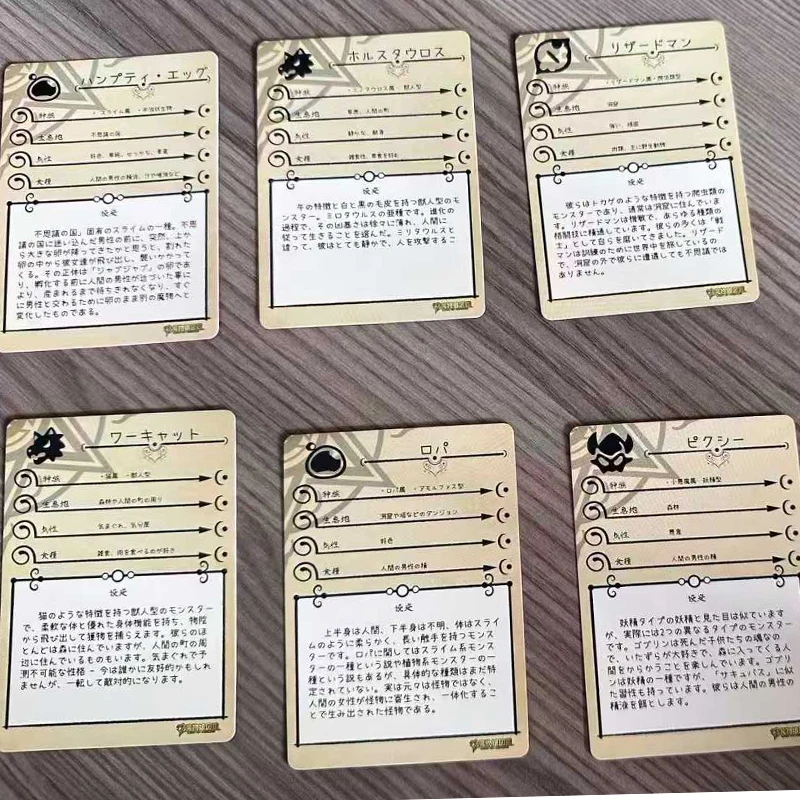 ハンプティ・エッグ
種族 ・スライム属 ・不定状生物
生息地 不思議の国
気性 好色、単純、せっかち、素直
食糧 人間の男性の精液、汗や唾液など
不思議の国」固有のスライムの一種。不思
議の国に迷い込んだ男性の前に、突然、上か
ら大きな卵が降ってきたかと思うと、割れた
卵の中から彼女達が飛び出し、襲いかかって
くる。その正体は「ジャブジャブ」の卵であ
り、孵化する前に人間の男性が近づいた事に
より、産まれるまで待ちきれなくなり、すぐ
に男性と交わるために卵のまま別の魔物へと
変化したものである。
ホルスタウロス
種族 ・ミノタウロス属 ・獣人型
生息地 草原、人間の町
気性
食糧 雑食性、草食を好む
牛の特徴と白と黒の毛皮を持つ獣人型のモ
ンスター。ミロタウルスの亜種です。進化の
過程で、その凶暴さは徐々に薄れ、人間に
従って生きることを選んだ。ミリタウルスと
違って、彼はとても静かで、人を攻撃するこ
リザードマン
種族 ・リザードマン属・爬虫類型
生息地 洞窟
気性
食糧 肉類、主に野生動物
彼らはトカゲのような特徴を持つ爬虫類の
モンスターであり、通常は洞窟に住んでいま
す。リザードマンは機敏で、あらゆる種類の
格闘技に精通しています。彼らの多くは「戦
士」として自らを磨いてきました。リザード
マンは訓練のために世界中を旅しているの
で、洞窟の外で彼らに遭遇しても不思議では
ありません。
ワーキャット
種族 ・猫属 ・獣人型
生息地 森林や人間の町の周り
気性 気まぐれ、気分屋
食糧 雑食、肉を食べるのが好き
猫のような特徴を持つ獣人型のモンスター
で、柔軟な体と優れた身体機能を持ち、物陰
から飛び出して獲物を捕らえます。彼らのほ
とんどは森に住んでいますが、人間の町の周
辺に住んでいるものもいます。気まぐれで予
測不可能な性格 - 今は誰かに友好的かもしれ
ませんが、一転して敵対的になります。
ロパ
種族 ・ロパ属 ・アモルファス型
生息地 洞窟や塔などのダンジョン
気性 好色
食糧 人間の男性の精
上半身は人間、下半身は不明、体はスライ
ムのように柔らかく、長い触手を持つモンス
ターです。ロパに関してはスライム系モンス
ターの一種という説や植物系モンスターの一
種という説もあるが、具体的な種類はまだ特
定されていない。実は元々は怪物ではなく、
人間の女性が怪物に寄生され、一体化するこ
とで生み出された怪物である。
ピクシー
種族 ・小悪魔属・妖精型
生息地 森林
気性
食糧 人間の男性の精
妖精タイプの妖精と見た目は似ています
が、実際には2つの異なるタイプのモンスター
です。ゴブリンは死んだ子供たちの魂なの
で、いたずらが大好きで、森に入ってくる人
間をからかうことを楽しんでいます。ゴブリ
ンは妖精の一種ですが、「サキュバス」に似
た習性も持っています。彼らは人間の男性の
精液を餌とします。